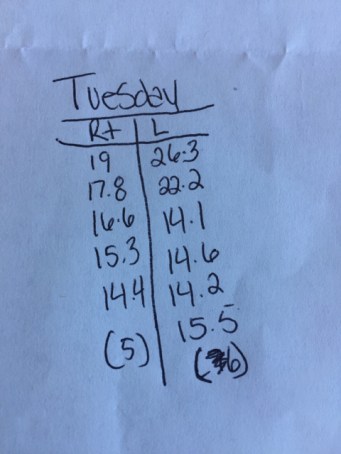 Tuesday
Rt L
19 26.3
17.8 22.2
16.6 14.1
15.3 14.6
14.4 14.2
15.5
(5) (6)